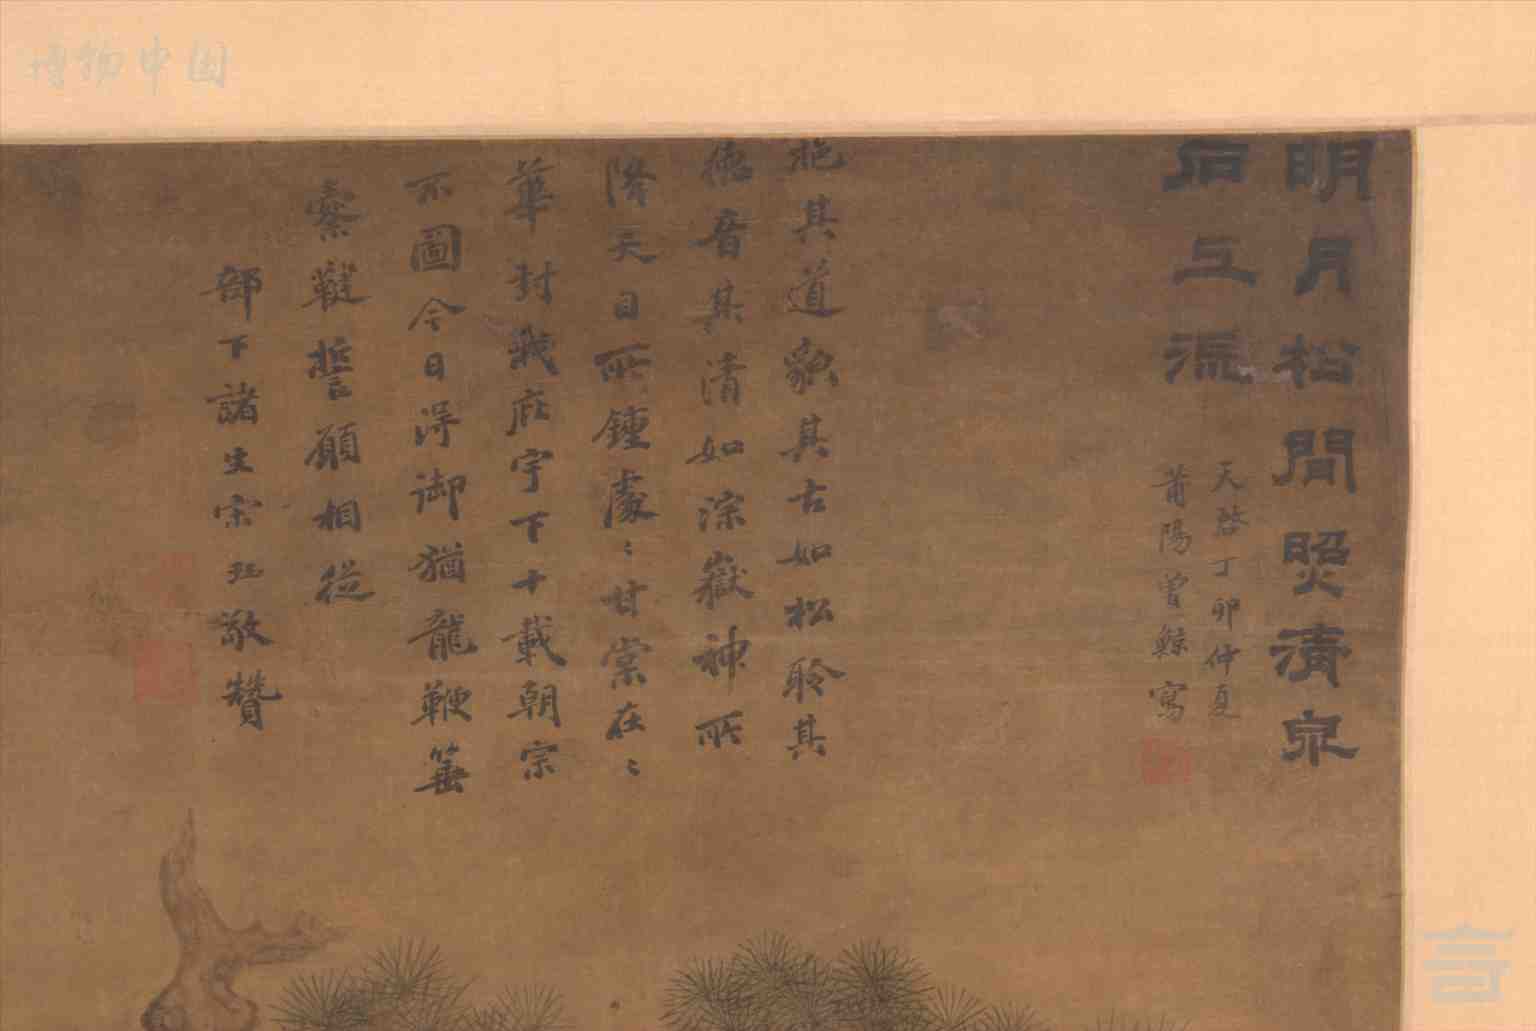 明月松間照清泉
石上流
天啓丁卯仲夏
莆陽曾鯨寫
其道貌其古如松聆其
德音其清如深嶽神所
降天目所鍾處〻甘棠在〻
華封戟庇宇下十載朝宗
不圖今日得御猶龍鞭箠
櫜鞬誓願相從
部下諸生宋玨敬贊
博物中国